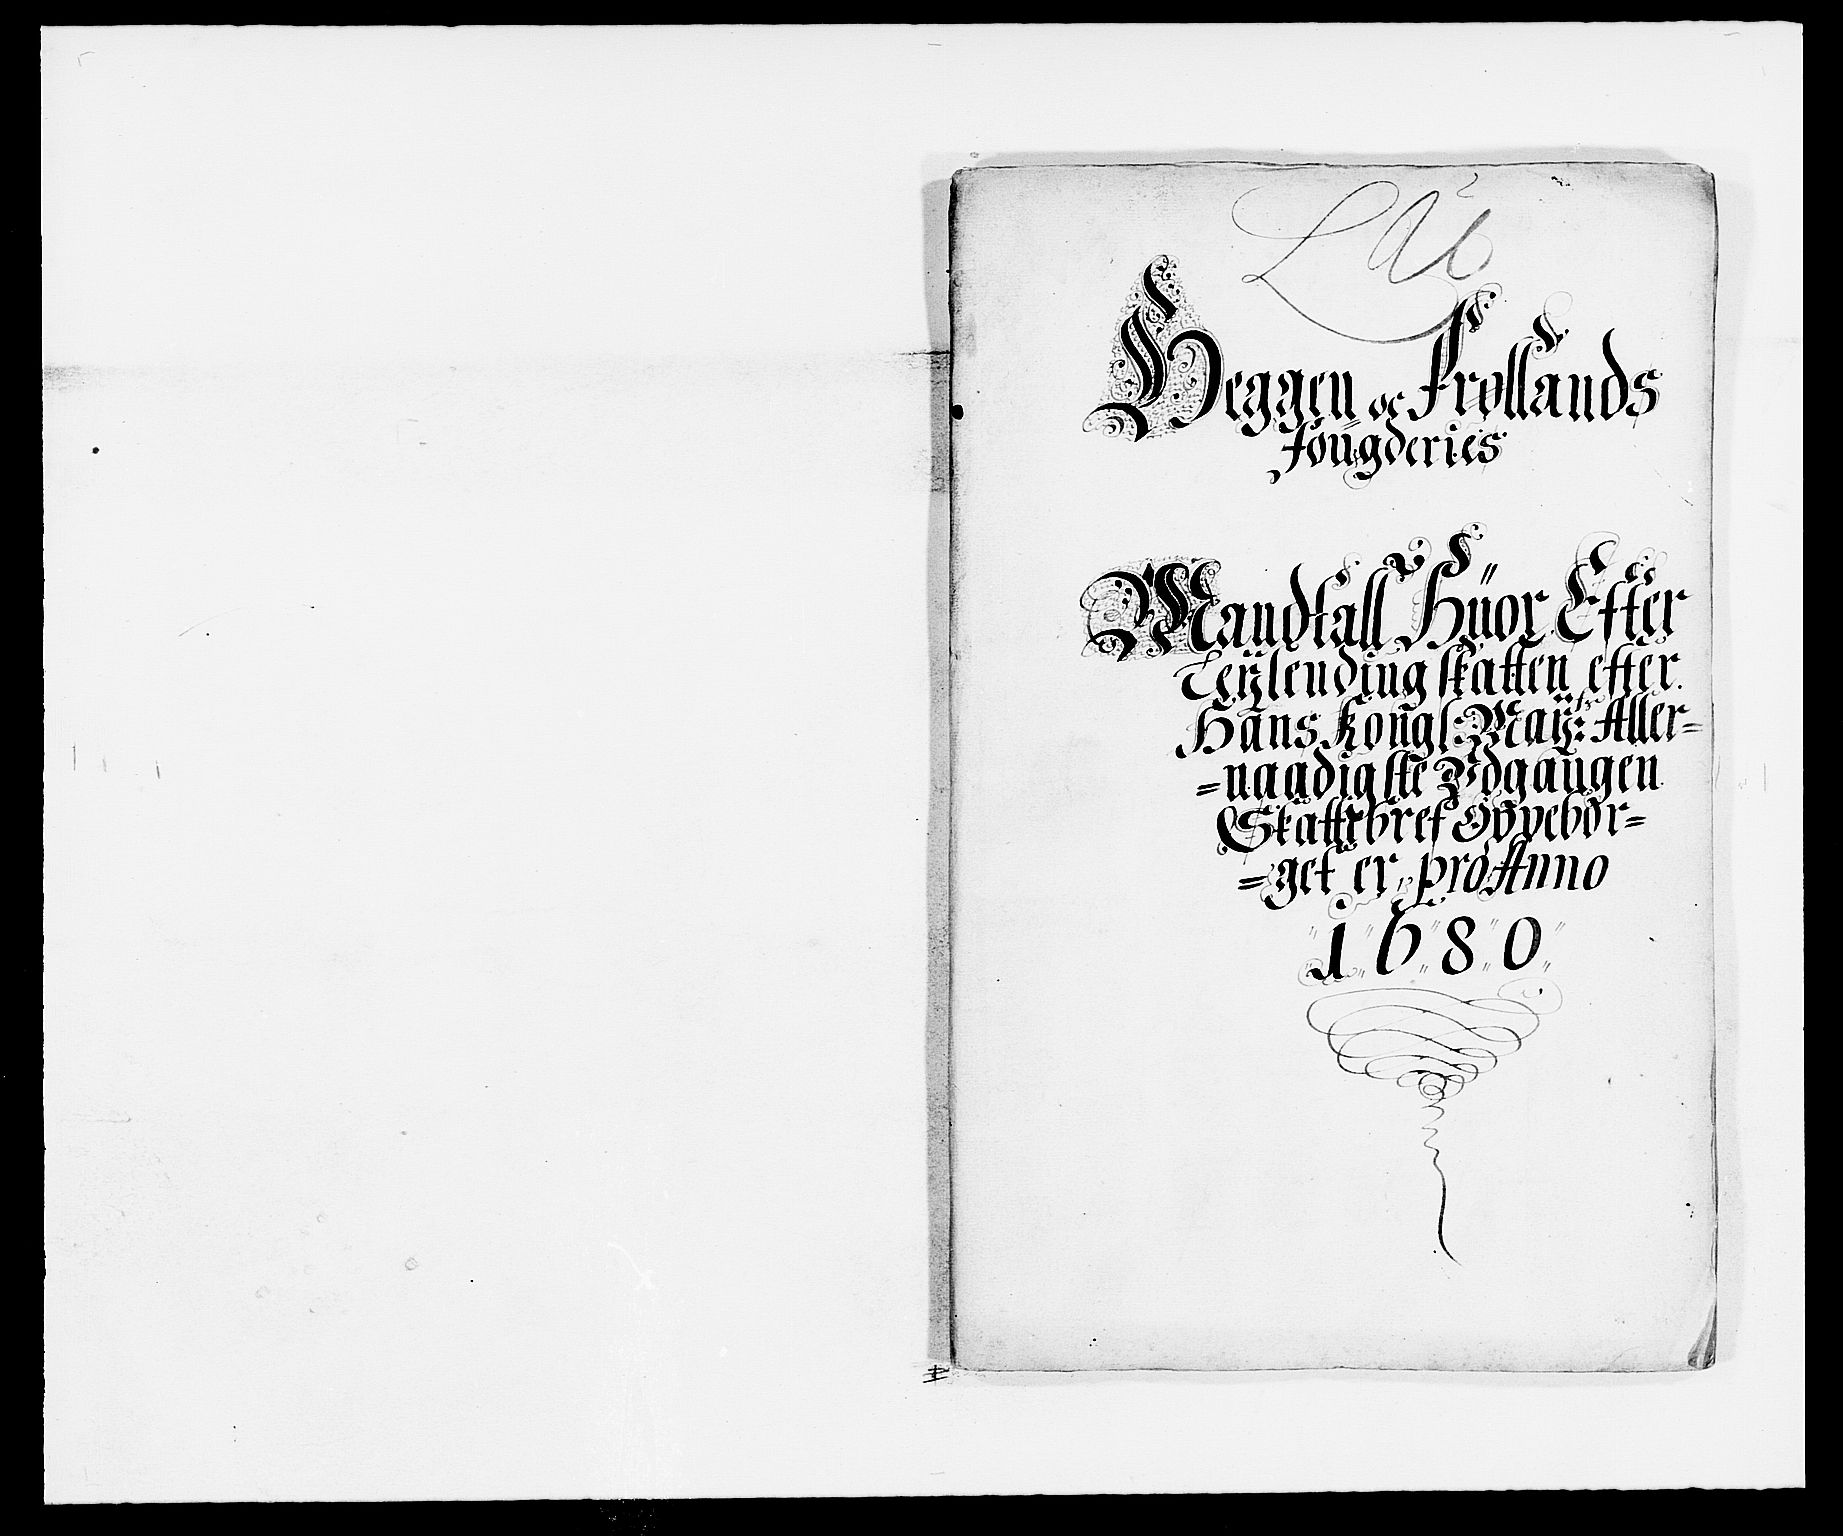 Heggen oc Frøllands
fougderies
Mandtall Huor Efter
Leylending skatten efter
Hans Kongl: May:ts Aller=
=naadigste Udgangen
Skattebref Oppebør=
=get er, pro Anno
1680